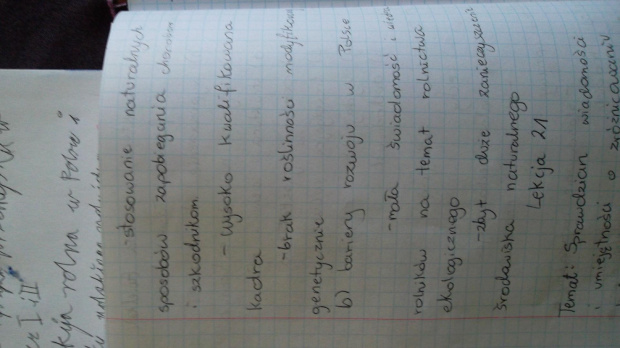 stosowanie naturalnych
sposobów zapobiegania chorobom
i szkodnikom
- wysoko kwalifikowana
kadra
- brak roślinności modyfikow
genetycznie
b) bariery rozwoju w Polsce
- mała świadomość i
rolników na temat rolnictwa
ekologicznego
- zbyt duże zanieczyszczenie
środowiska naturalnego
Lekcja 21
Temat: Sprawdzian wiadomości
i umiejętności o zróżnicowaniu
I i II
rolna w Polsce i